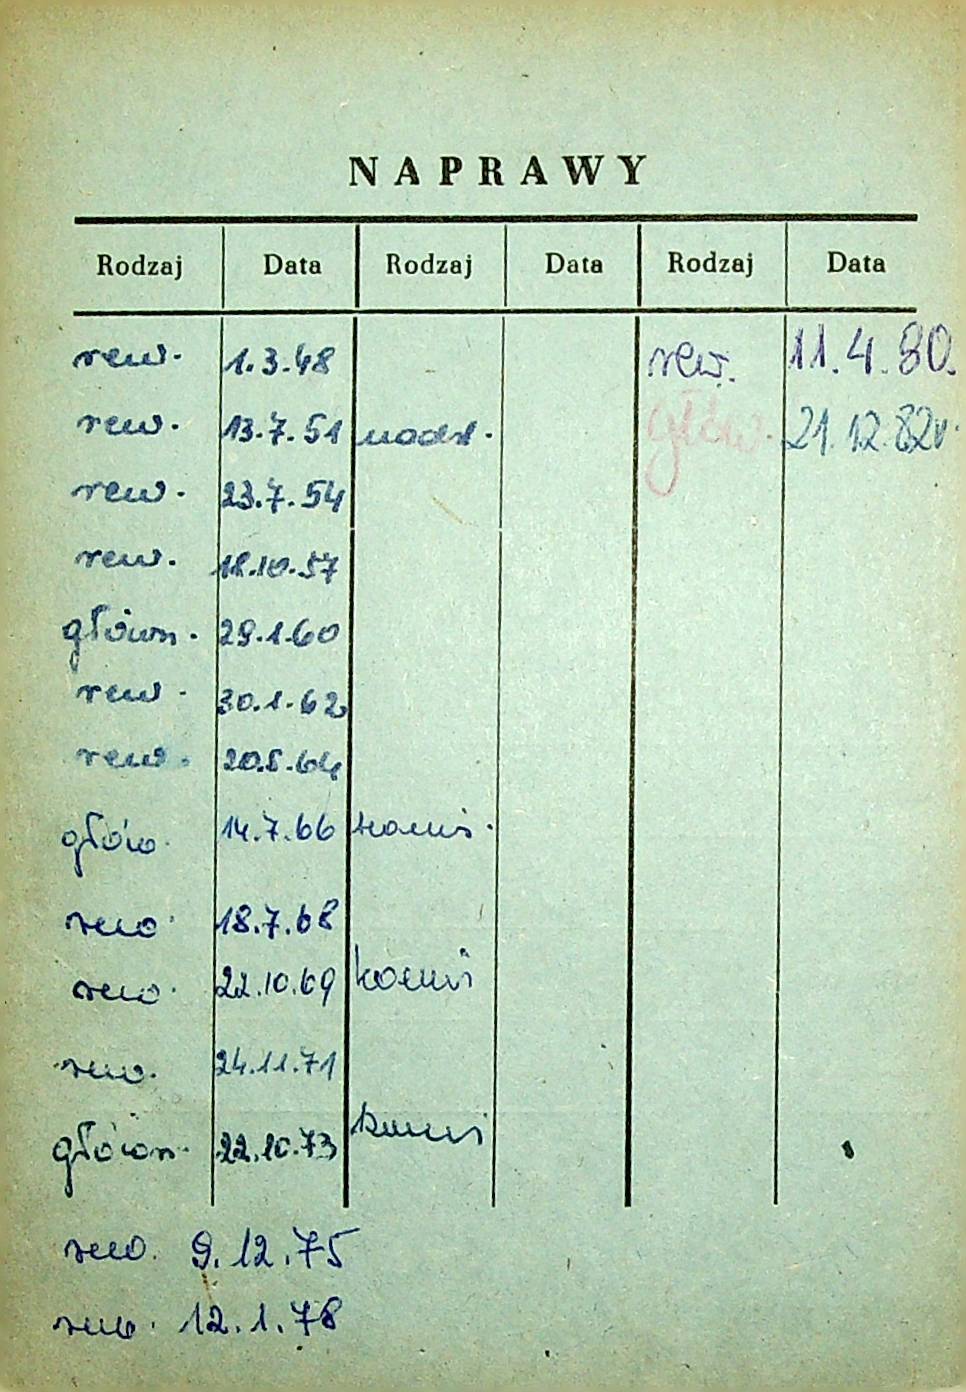 NAPRAWY
Rodzaj Data Rodzaj Data Rodzaj Data
rew. 1.3.48 rew. 11.4.80.
rew. 13.7.51 główn. 21.12.82r.
rew. 23.7.54
rew. 18.10.57
główn. 29.1.60
rew. 30.1.62
rew. 20.5.64
główn. 14.7.66
rew. 18.7.68
rew. 22.10.69
rew. 24.11.71
główn. 22.10.73
rew. 9.12.75
rew. 12.1.78